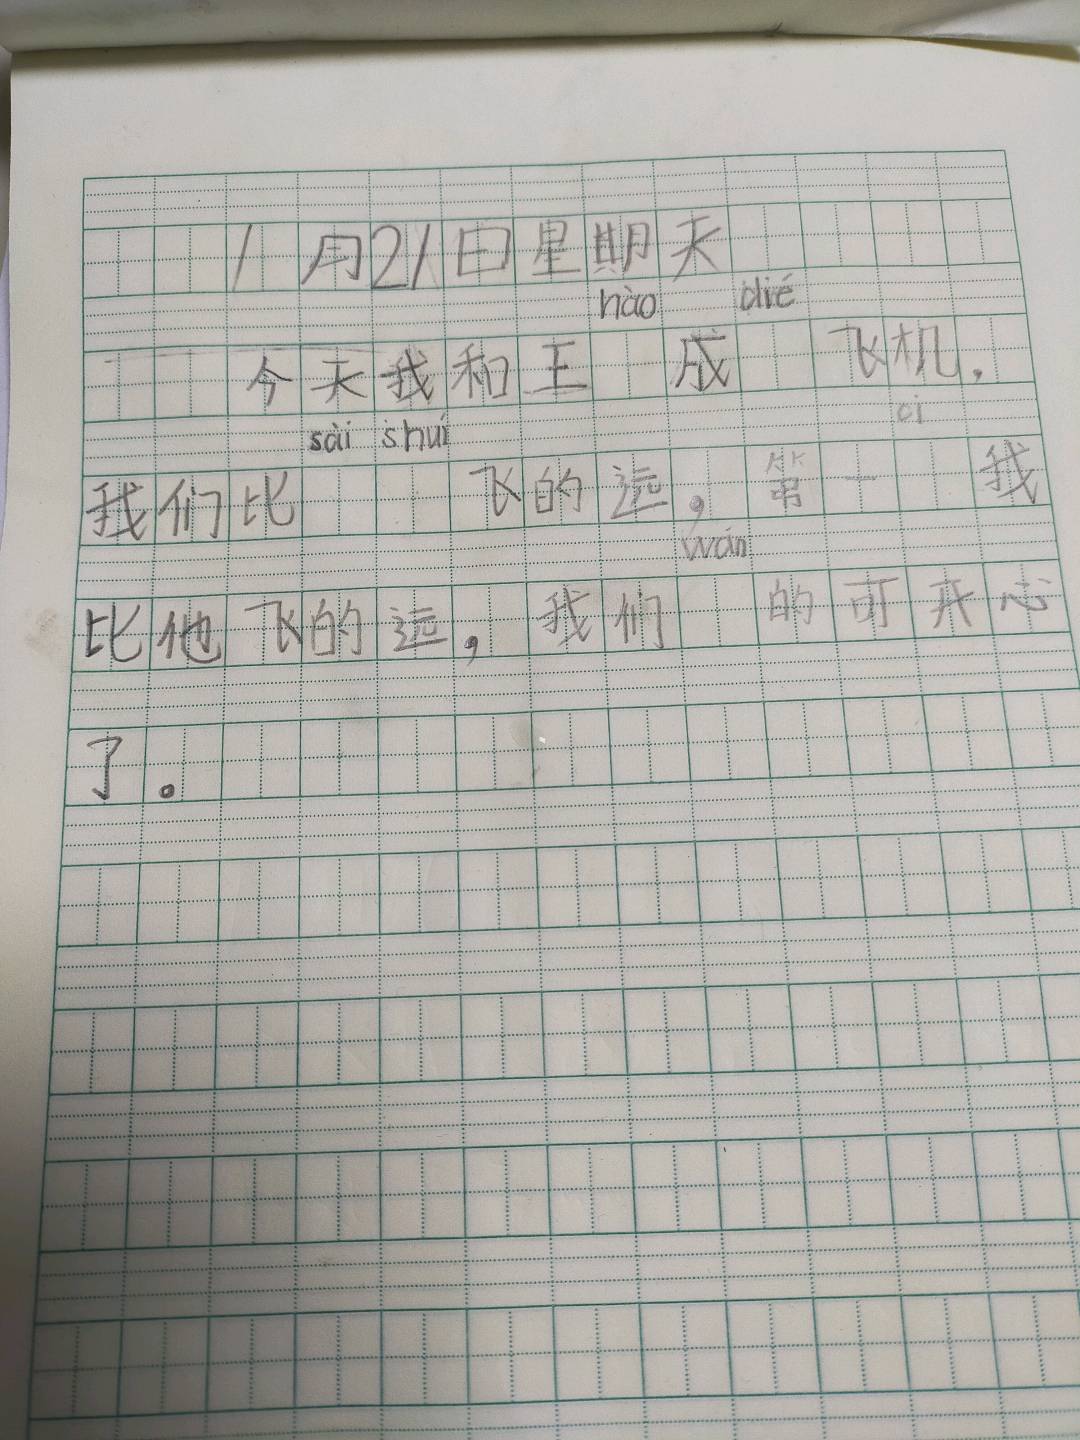 1月21日星期天
hào dié
今天我和王 成 飞机.
sài shuí cì
我们比 飞的远,第一 我
wán
比他飞的远,我们 的可开心
了。